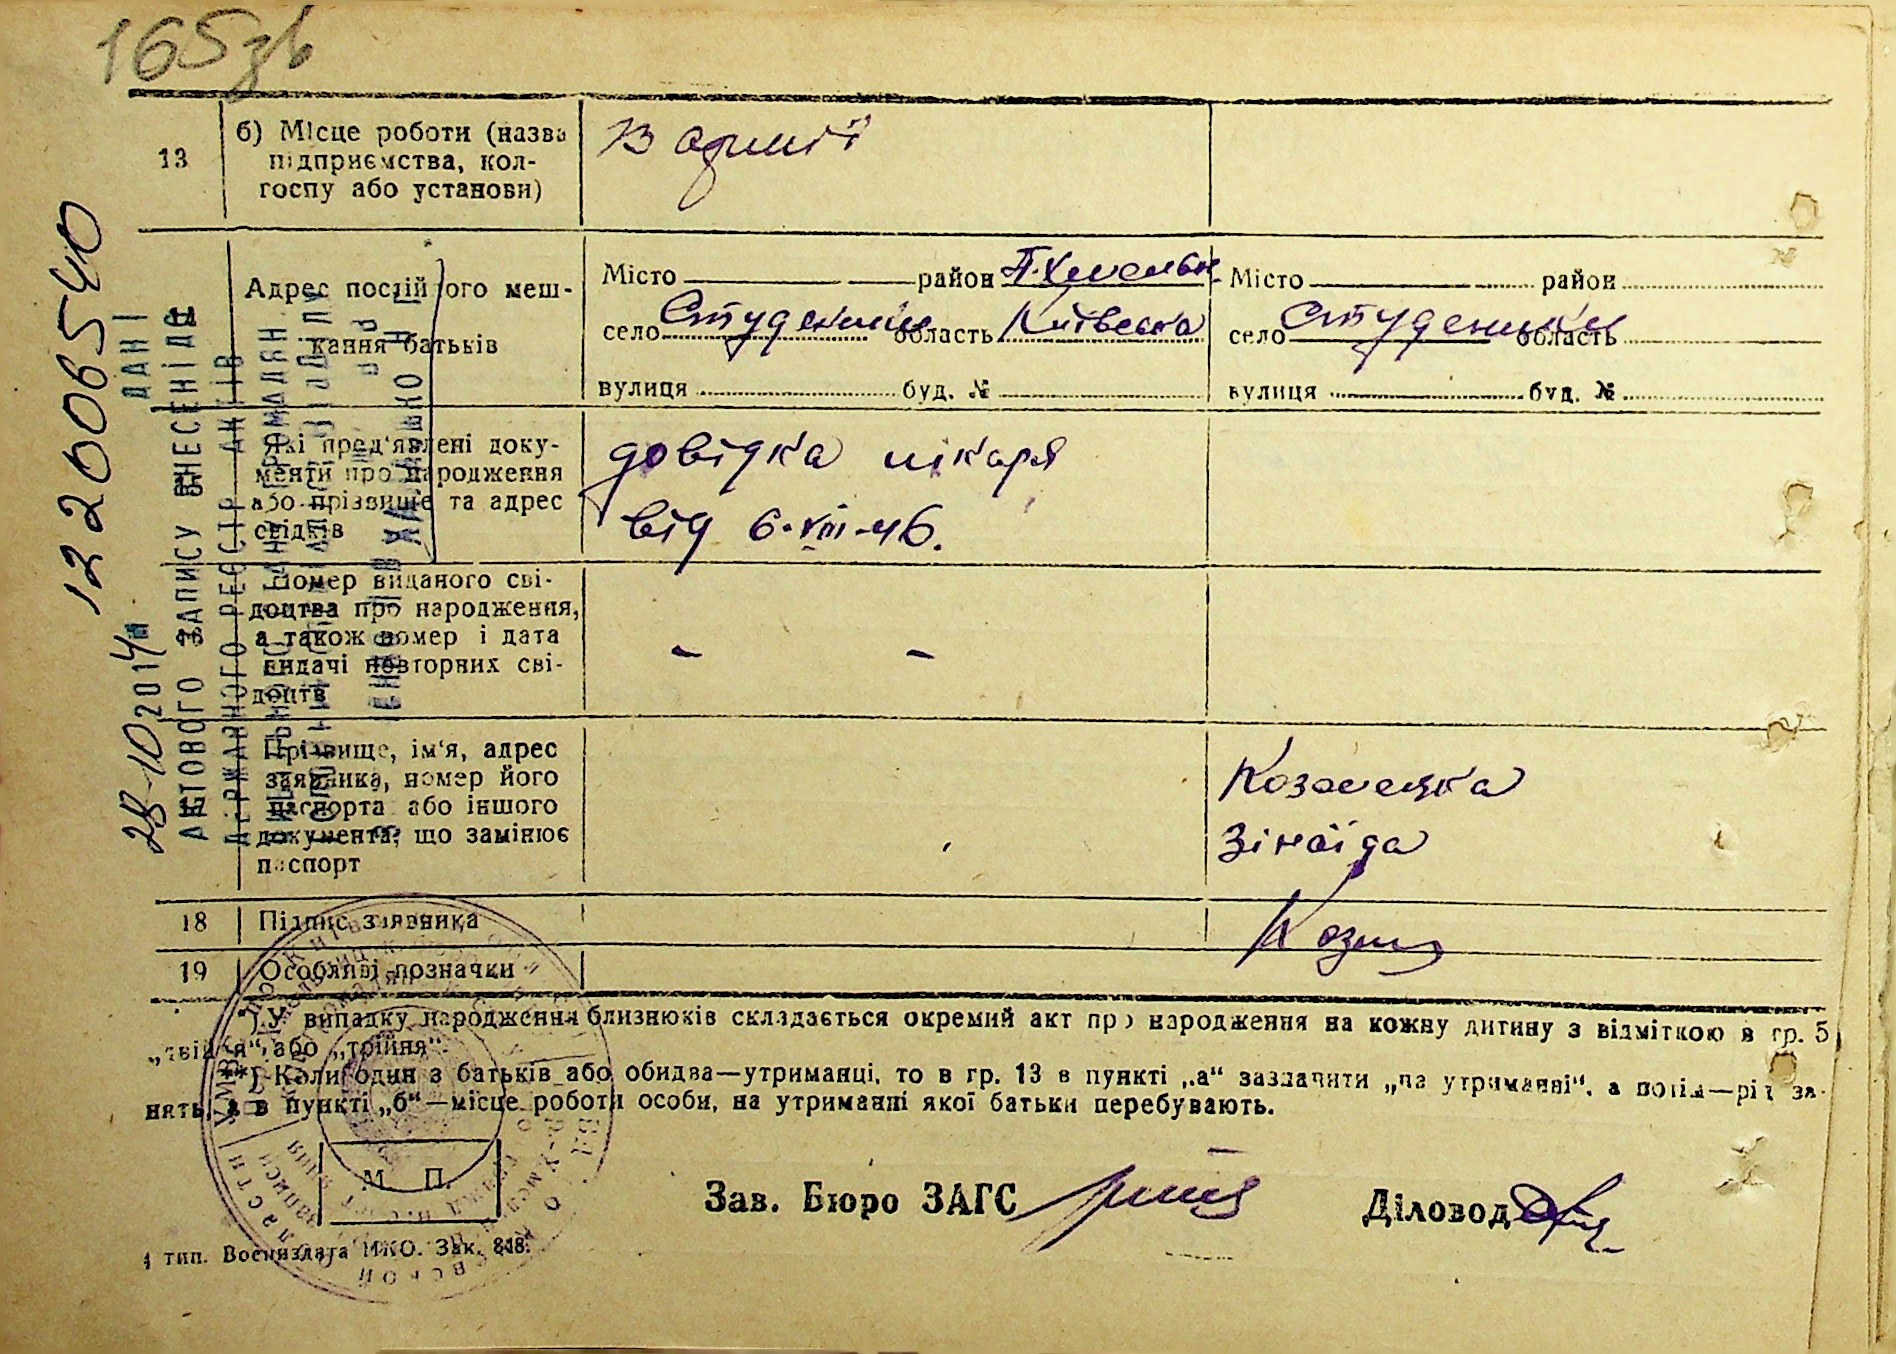 165зв
13
б) Місце роботи (назва
підприємства, кол-
госпу або установи)
В армії
Адрес постійного меш-
кання батьків
Місто район П.Хмельн.
село Студеники область Київська
вулиця буд. №
Місто район
село Студеники область
вулиця буд. №
Які пред'явлені доку-
менти про народження
або прізвище та адрес
свідків
довідка лікаря
від 6-VIII-46.
Номер виданого сві-
доцтва про народження,
а також номер і дата
видачі повторних сві-
доцтв
– –
Прізвище, ім'я, адрес
заявника, номер його
паспорта або іншого
документа, що замінює
паспорт
Зінаїда
18 Підпис заявника
19 Особливі позначки
*) У випадку народження близнюків складається окремий акт про народження на кожну дитину з відміткою в гр. 5
„двійня“ або „трійня“.
**) Коли один з батьків або обидва—утриманці, то в гр. 13 в пункті „а“ зазначити „на утриманні“, а потім—рід за-
нять, а в пункті „б“—місце роботи особи, на утриманні якої батьки перебувають.
М. П.
Зав. Бюро ЗАГС
Діловод
4 тип. Воениздата МКО. Зак. 818.
122006540
ДАНІ
АКТОВОГО ЗАПИСУ ВНЕСЕНІ ДО
ДЕРЖАВНОГО РЕЄСТР АКТІВ
28-10 2014